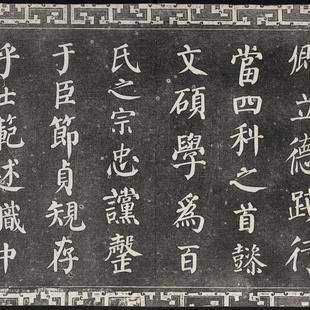 卿立德踐行
當四科之首懿
文碩學爲百
氏之宗忠讜罄
于臣節貞規存
乎士範述職中